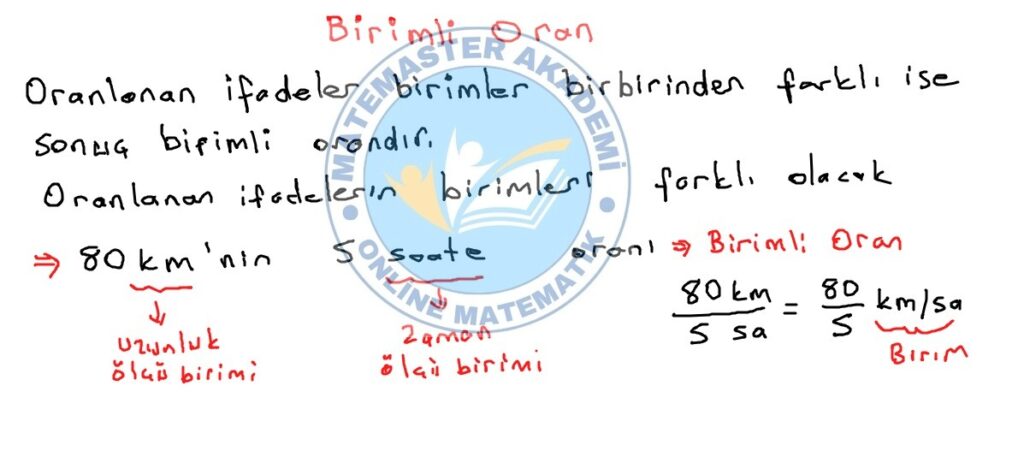 Birimli Oran
Oranlanan ifadeler birimler birbirinden farklı ise
sonuç birimli orandır.
Oranlanan ifadelerin birimleri farklı olacak
⇒ 80 km'nin 5 saate oranı ⇒ Birimli Oran
80 km / 5 sa = 80 / 5 km/sa
Birim
uzunluk
ölçü birimi
Zaman
ölçü birimi
MATEMASTER AKADEMİ
ONLINE MATEMATİK